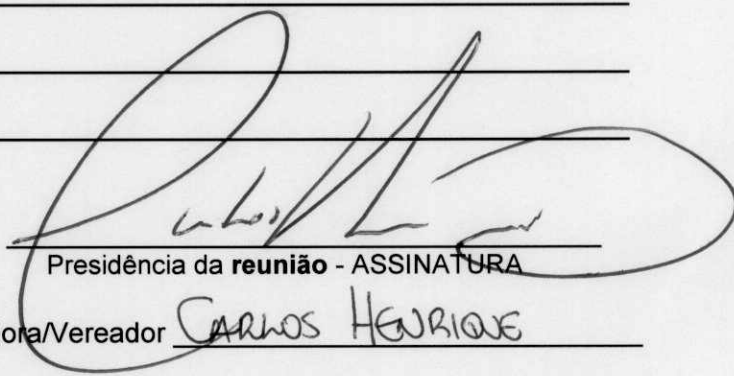 Presidência da reunião - ASSINATURA
ora/Vereador CARLOS HENRIQUE